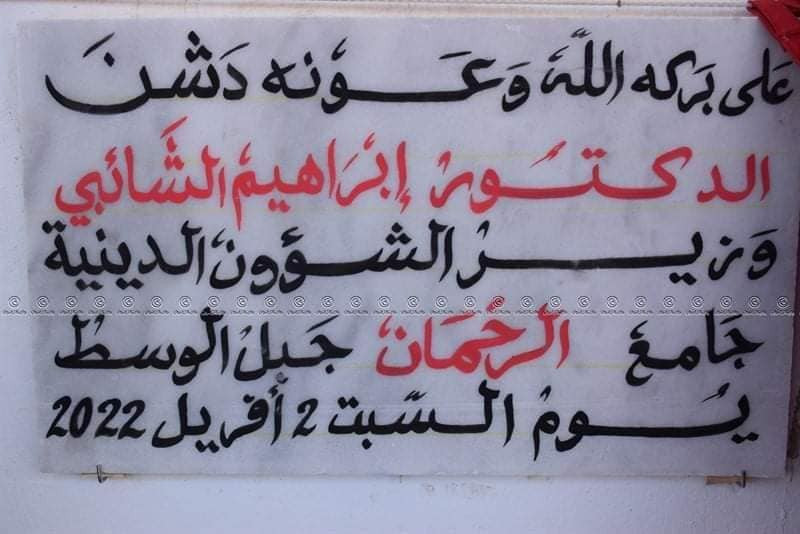 عَلى بَركه اللّه وَعَونه دَشن
الدكتور إبرَاهيم الشَّائبي
وَزير الشؤون الدينية
جَامع الرحْمَان جَبل الوسط
يوم السّبت 2 أفريل 2022